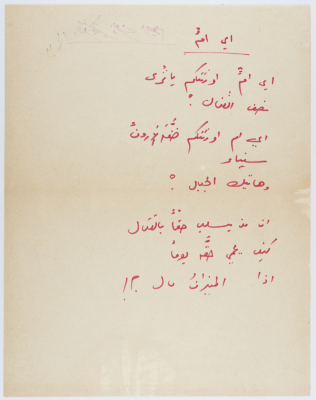 اي امٍّ
اي امٍّ اورثتكم يا تُرى
نصف القنال ؟
اي ام اورثتكم ضفة
سيناء
وهاتيك الجبال ؟
ان من يسلب حقاً بالقتال
كيف يحمي حقَّه يوماً
اذا الميزان مال ؟!